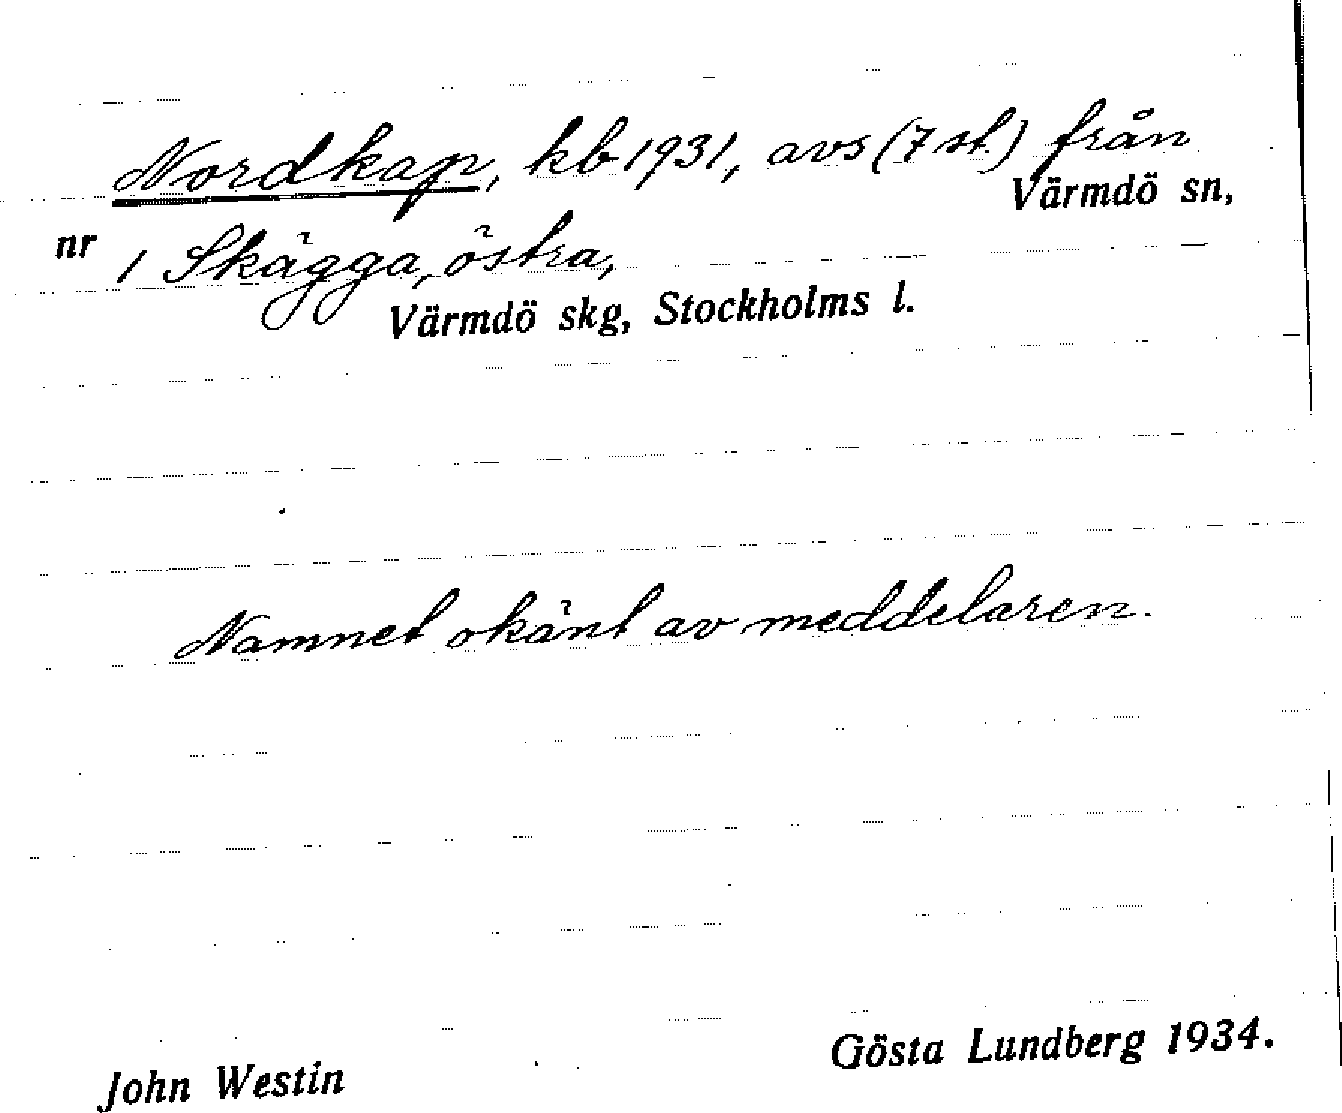 Nordkap, kb 1931, avs (7 st.) från
Värmdö sn,
nr 1 Skägga, östra,
Värmdö skg, Stockholms l.
Namnet okänt av meddelaren.
John Westin
Gösta Lundberg 1934.